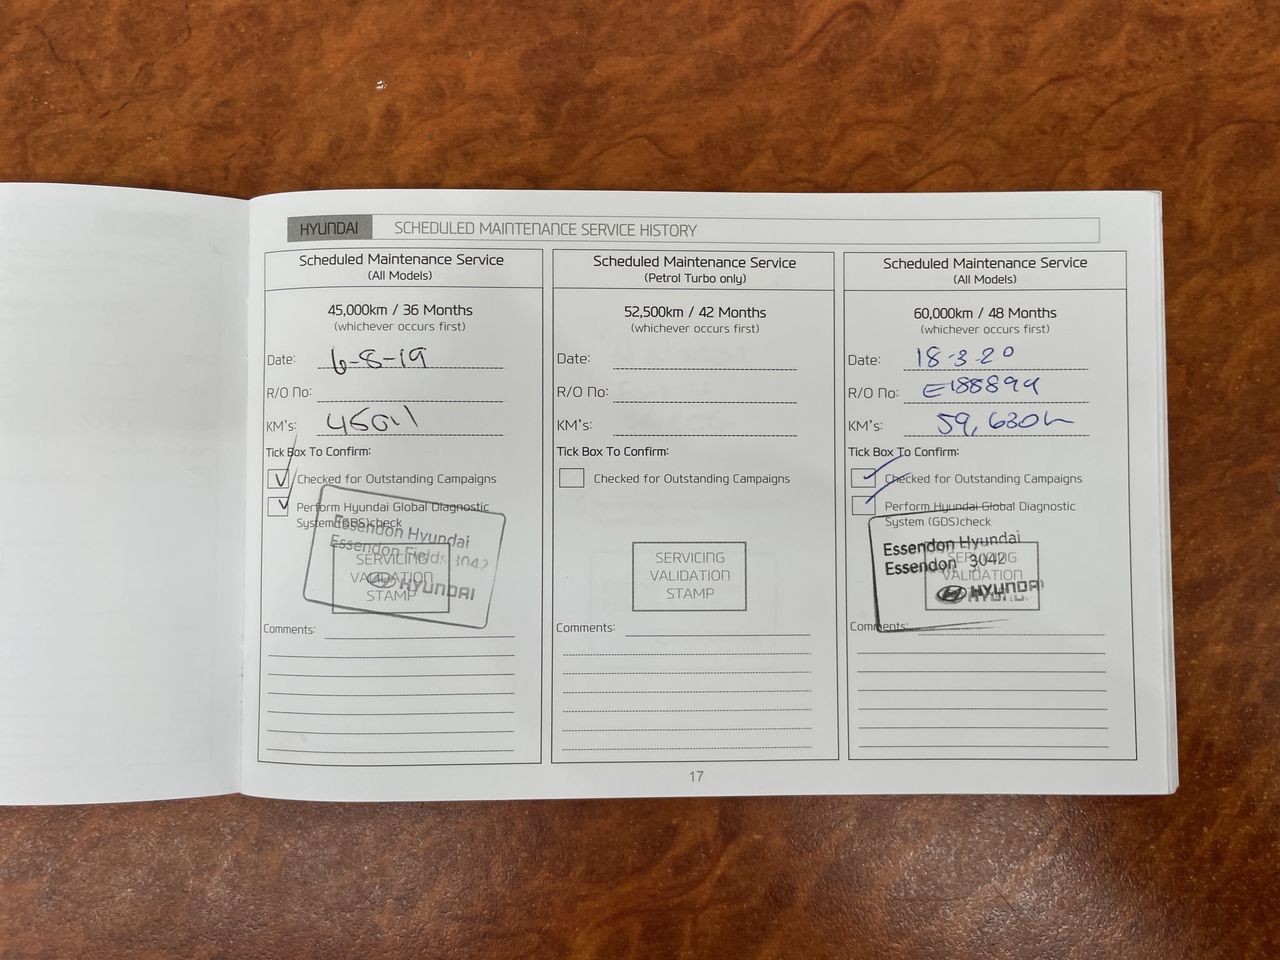 HYUNDAI SCHEDULED MAINTENANCE SERVICE HISTORY
Scheduled Maintenance Service
(All Models)
45,000km / 36 Months
(whichever occurs first)
Date: 6-8-19
R/O No:
KM's:
Tick Box To Confirm:
Checked for Outstanding Campaigns
Perform Hyundai Global Diagnostic
System (GDS)check
Essendon Hyundai
Essendon Fields 3042
HYUNDAI
SERVICING
VALIDATION
STAMP
Comments:
Scheduled Maintenance Service
(Petrol Turbo only)
52,500km / 42 Months
(whichever occurs first)
Date:
R/O No:
KM's:
Tick Box To Confirm:
Checked for Outstanding Campaigns
SERVICING
VALIDATION
STAMP
Comments:
Scheduled Maintenance Service
(All Models)
60,000km / 48 Months
(whichever occurs first)
Date: 18-3-20
R/O No: E188899
KM's:
Tick Box To Confirm:
Checked for Outstanding Campaigns
Perform Hyundai Global Diagnostic
System (GDS)check
Essendon Hyundai
Essendon 3042
HYUNDAI
SERVICING
VALIDATION
Comments:
17